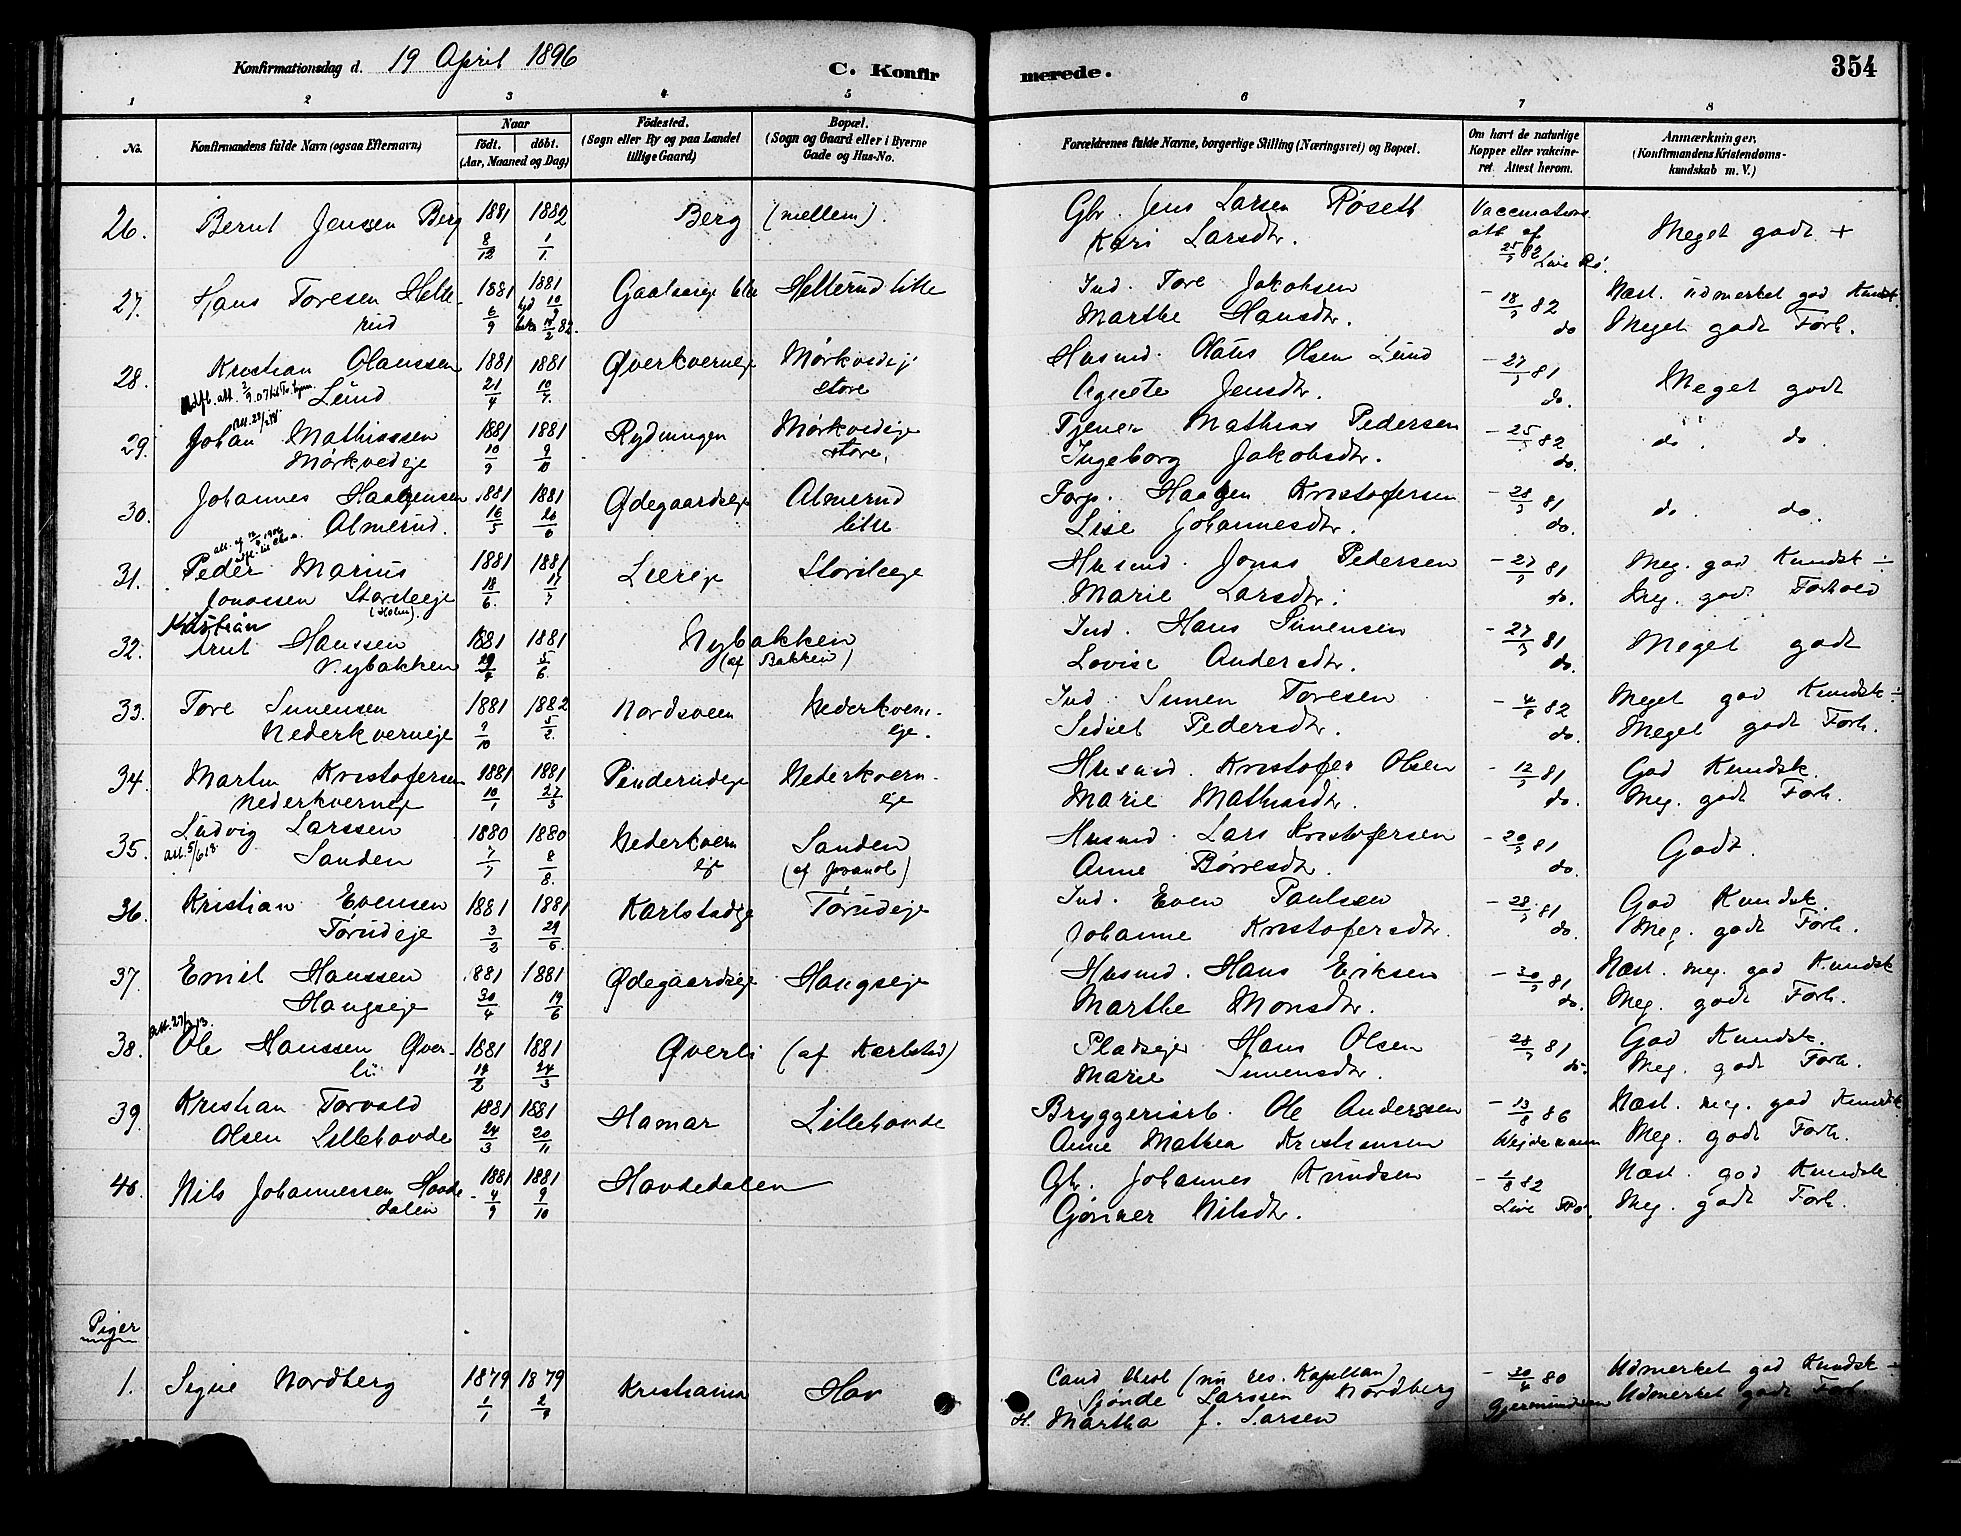 Konfirmationsdag d. 19 April 1896
C. Konfirmerede.
354
1 2 3 4 5 6 7 8
No. Konfirmandens fulde Navn (ogsaa Efternavn) Naar født. døbt. (Aar, Maaned og Dag) Fødested. (Sogn eller By og paa Landet tillige Gaard) Bopæl. (Sogn og Gaard eller i Byerne Gade og Hus-No. Forældrenes fulde Navne, borgerlige Stilling (Næringsvei) og Bopæl. Om havt de naturlige Kopper eller vakcineret. Attest herom. Anmærkninger. (Konfirmandens Kristendomskundskab m. V.)
26. Bernt Jenssen Berg 1881 8/12 1882 1/1 Berg (mellem). Gbr. Jens Larsen Røseth
Kari Larsdtr. Vaccinations att af Meget godt +
27. Hans Toresen Hellerud 1881 6/9 1881 Hellerud lille Ind. Tore Jakobsen
Marthe Hansdtr. 82 do Næst. udmerket god Kundsk.
Meget godt Forh.
28. Kristian Olaussen Lund 1881 21/4 1881 10/7 Øverkverneje Mørkvedeje store Husmd. Olaus Olsen Lund
Agnete Jensdtr. 81 do. Meget godt
29. Johan Mathiassen Mørkvedeje 1881 10/9 1881 9/10 Rydningen Mørkvedeje store. Tjener Mathias Pedersen
Ingeborg Jakobsdtr. 82 do. do. do.
30. Johannes Haagensen Almerud. 1881 16/5 1881 26/6 Ødegaardseje Almerud lille Forp. Haagen Kristofersen
Lise Johannesdtr. 81 do. do. do.
31. Peder Marius Jonassen Storileeje (Holm). 1881 18/6. 1881 17/7 Liereje Storileeje Husmd. Jonas Pedersen
Marie Larsdtr. 81 do. Meg. god Kundsk ÷
Meg. godt Forhold
32. Kristian Arnt Hanssen Nybakken 1881 29/4 1881 5/6. Nybakken (af Bakken) Ind. Hans Simensen
Lovise Andersdtr. 81 do. Meget godt
33. Tore Simensen Nederkverneje 1881 9/10 1882 5/2. Nordsveen Nederkverneje. Ind Simen Toresen
Sidsel Pedersdtr. 82 do. Meget god Kundsk ÷
Meget godt Forh.
34. Martin Kristofersen Nederkverneje 1881 10/1 1881 27/3 Pinderudeje Nederkverneje Husmd. Kristofer Olsen
Marie Mathisdtr. 81 do. God Kundsk.
Meg. godt Forh.
35. Ludvig Larssen Sanden 1880 7/7 1880 8/8. Nederkverneje Sanden Husmd. Lars Kristofersen
Anne Børresdtr. 81 do. Godt.
36. Kristian Evensen Tørudeje 1881 3/2 1881 29/5. Karlstadeje Tørudeje Ind. Even Paulsen
Johanne Kristofersdtr. 81 do. God Kundsk.
Meg. godt Forh.
37. Emil Hanssen Haugseje 1881 30/4 1881 19/6 Ødegaardseje Haugseje Husmd. Hans Eriksen
Marthe Monsdtr. 81 do. Næst. meg. god Kundsk
Meg. godt Forh.
38. Ole Hanssen Øverli 1881 14/2 1881 24/3 Øverli (af Karlstad) Pladsejer Hans Olsen
Marie Simensdtr. 81 do. God Kundsk.
Meg. godt Forh.
39. Kristian Torvald Olsen Lillehovde 1881 24/3 1881 20/11 Hamar Lillehovde Bryggeriarb. Ole Anderssen
Anne Mathea Kristiansen 13/8 86 Næst. meg. god Kundsk
Meg. godt Forh.
40. Nils Johannessen Hovdedalen 1881 4/9 1881 9/10 Hovdedalen Gbr. Johannes Knudsen
Gønner Nilsdtr. 82 Næst. god Kundsk
Meg. godt Forh.
Piger
1. Signe Nordberg 1879 1/1 1879 Kristiania Hov Cand theol (nu res. Kapellan)
Sjønde Larssen Nordberg
H. Martha f. Larsen 80 Gjermundsen Udmerket god Kundsk ÷
Udmerket godt Forh.